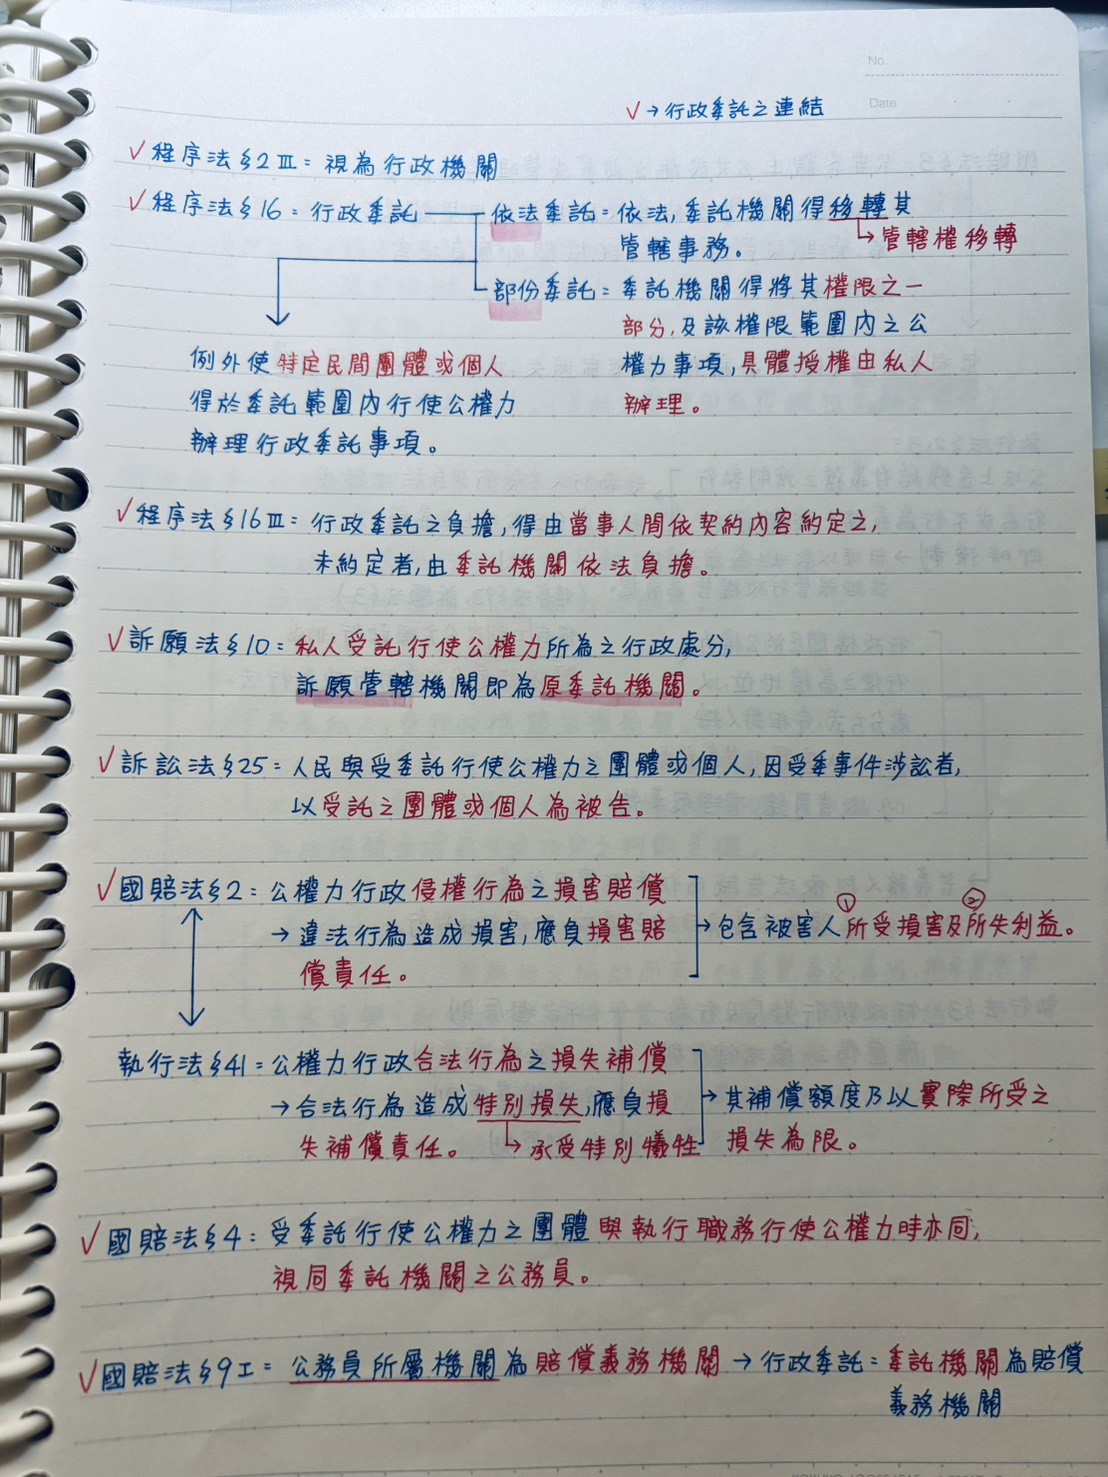 No.
Date
✓→行政委託之連結
✓程序法§2Ⅲ=視為行政機關
✓程序法§16=行政委託
依法委託=依法,委託機關得移轉其
管轄事務。
→管轄權移轉
部份委託=委託機關得將其權限之一
部分,及該權限範圍內之公
權力事項,具體授權由私人
辦理。
例外使特定民間團體或個人
得於委託範圍內行使公權力
辦理行政委託事項。
✓程序法§16Ⅲ=行政委託之負擔,得由當事人間依契約內容約定之,
未約定者,由委託機關依法負擔。
✓訴願法§10=私人受託行使公權力所為之行政處分,
訴願管轄機關即為原委託機關。
✓訴訟法§25=人民與受委託行使公權力之團體或個人,因受委事件涉訟者,
以受託之團體或個人為被告。
✓國賠法§2=公權力行政侵權行為之損害賠償
→違法行為造成損害,應負損害賠
償責任。
→包含被害人①所受損害及②所失利益。
執行法§41=公權力行政合法行為之損失補償
→合法行為造成特別損失,應負損
失補償責任。
→承受特別犧牲
→其補償額度乃以實際所受之
損失為限。
✓國賠法§4:受委託行使公權力之團體與執行職務行使公權力時亦同,
視同委託機關之公務員。
✓國賠法§9Ⅰ=公務員所屬機關為賠償義務機關→行政委託=委託機關為賠償
義務機關